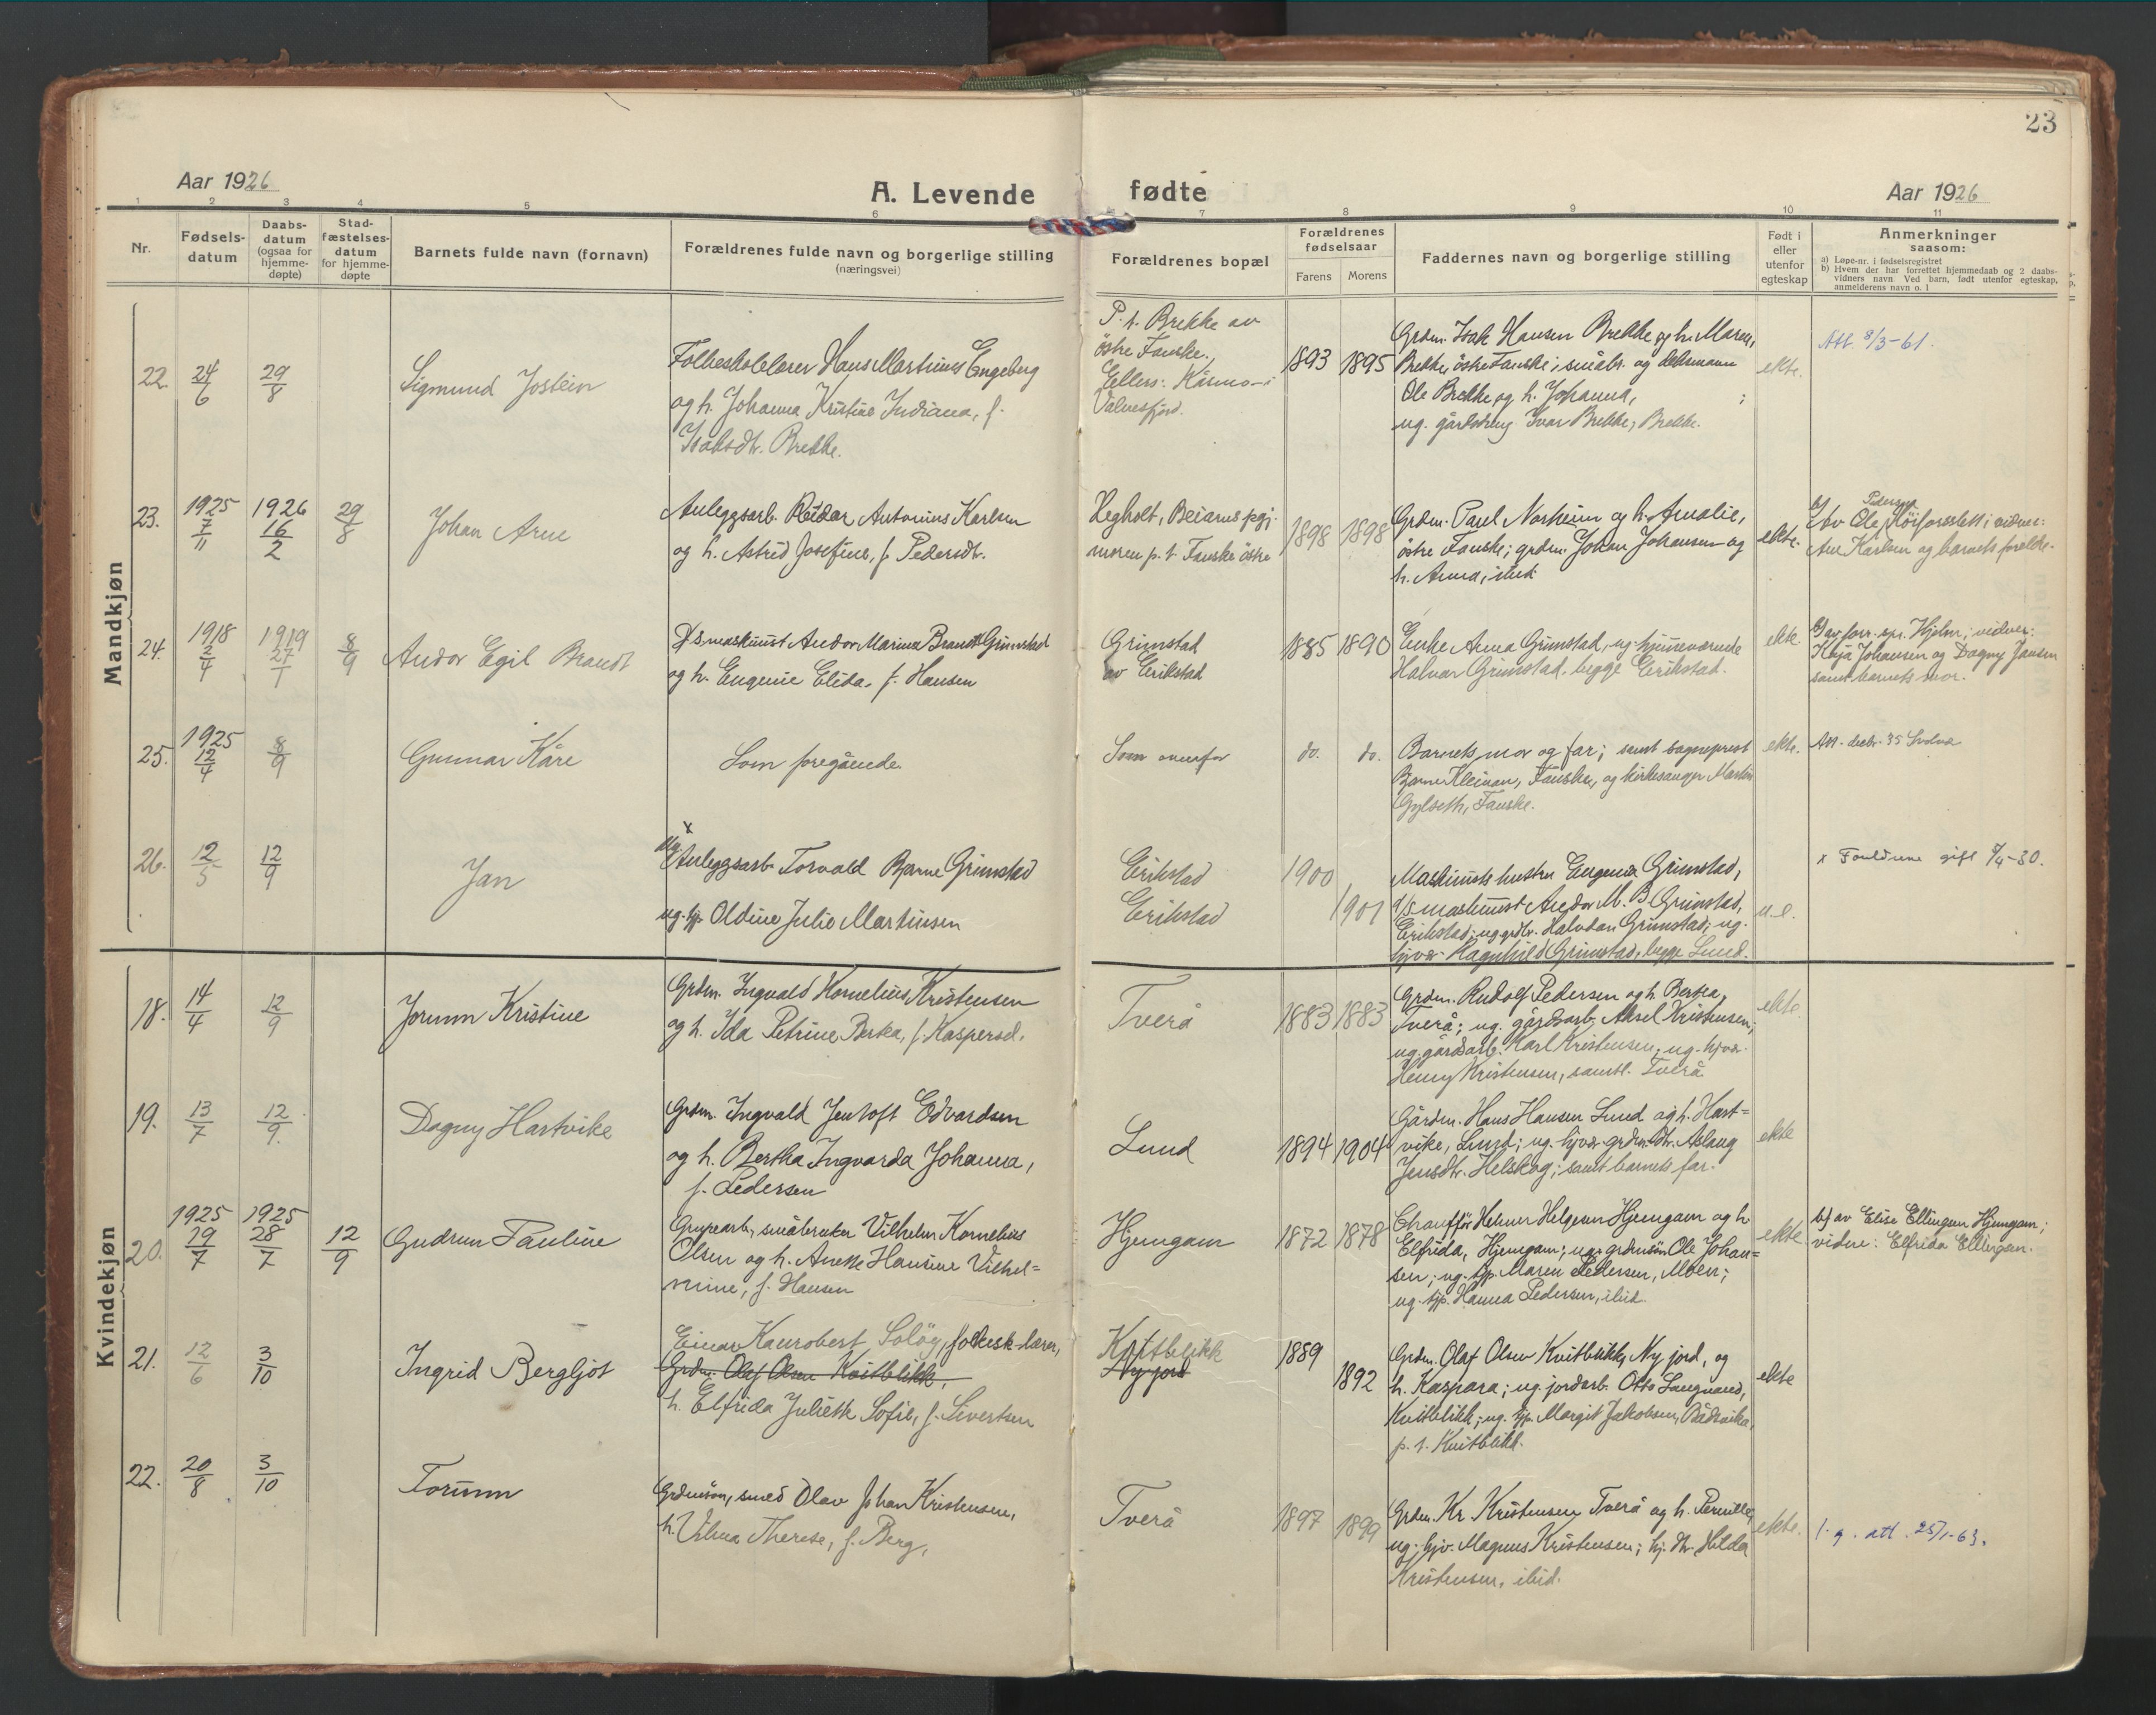 23
Aar 1926
A. Levende fødte
Aar 1926
1 2 3 4 5 6 7 8 9 10 11
Nr.
Fødsels-
datum
Daabs-
datum
(ogsaa for
hjemme-
døpte)
Stad-
fæstelses-
datum
for hjemme-
døpte
Barnets fulde navn (fornavn)
Forældrenes fulde navn og borgerlige stilling
(næringsvei)
Forældrenes bopæl
Forældrenes
fødselsaar
Farens Morens
Faddernes navn og borgerlige stilling
Født i
eller
utenfor
egteskap
Anmerkninger
saasom:
a) Løpe-nr. i fødselsregistret
b) Hvem der har forrettet hjemmedaab og 2 daabs-
vidners navn Ved barn, født utenfor egteskap,
anmelderens navn o. l
Mandkjøn
22. 24/6 29/8
Sigmund Jostein
Folkeskolelærer Hans Martinus Engeberg
og h. Johanna Kristine Indiana, f.
Isaksdtr. Brekke.
P. t. Brekke av
östre Fauske.
Ellers: Kosmo i
Valnesfjord.
1893 1895
Grdm. Isak Hansen Brekke og h. Maren,
Brekke östre Fauske; småbr. og
Ole Brekke og h. Johanna,
ug. gårdsdreng Ivar Brekke, Brekke.
ekte.
Att. 8/3-61.
23. 1925 7/11 1926 16/2 29/8
Johan Arne
Anleggsarb. Reidar Antonius Karlsen
og h. Astrid Josefine, f. Pedersdt.
Hegholt, Beiarns pgj.
moren p. t. Fauske östre
1898 1898
Grdm. Parel Norheim og h. Amalie,
östre Fauske; grdm. Johan Johansen og
h. Anna, ibid.
ekte.
b) Av Ole Pedersen Höiforsslett; vidner:
Karlsen og barnets forældre.
24. 1918 2/4 1919 27/1 8/9
Andor Egil Brandt
D/s maskinist Andor Marius Brandt Grimstad
og h. Eugenie Elida, f. Hansen
Grimstad
av Erikstad
1885 1890
Enke Anna Grimstad, ug. hjemmeværende
Halvar Grimstad, begge Erikstad.
ekte
b) av forr. spr. Hjelm; vidner:
Kaja Johansen og Dagny Jansen
samt barnets mor.
25. 1925 12/4 8/9
Gunnar Kåre
Som foregående.
Som ovenfor
do. do.
Barnets mor og far; samt sogneprest
Bjarne Kleivan, Fauske, og kirkesanger Martin
Gylseth, Fauske.
ekte.
Att. decbr. 35
26. 12/5 12/9
Jan
x
ug. Anleggsarb. Torvald Bjarne Grimstad
ug. tjp. Oldine Julie Martinsen
Erikstad
Erikstad
1900
1901
Maskinists hustru Eugenia Grimstad,
D/s maskinist Andor M. B. Grimstad,
Erikstad; ug. grdbr. Halvdan Grimstad; ug.
hjvær. Ragnhild Grimstad, begge Lund.
u.e.
x Foreldrene gift 7/4-30.
Kvindekjøn
18. 14/4 12/9
Jorunn Kristine
Grdm. Ingvald Kornelius Kristensen
og h. Ida Petrine Berka, f. Kaspersd.
Tverå
1883 1883
Grdm. Rudolf Pedersen og h. Bertea,
Tverå; ug. gårdsarb. Aksel Kristensen;
ug. gårdsarb. Karl Kristensen; ug. hjvær.
Henny Kristensen, samtl. Tverå
ekte.
19. 13/7 12/9.
Dagny Hartvike
Grdm. Ingvald Jentoft Edvardsen
og h. Bertha Ingvarda Johanna,
f. Pedersen
Lund
1894 1904
Gårdm. Hans Hansen Lund og h. Hart=
vike, Lund; ug. hjvær. grdm.dtr. Aslaug
Jensdtr. Helskog; samt barnets far.
ekte
20. 1925 19/7 1925 28/7 12/9
Gudrun Pauline
Grupearb., småbruker Vilhelm Kornelius
Olsen og h. Anette Hansine Vilhel=
mine, f. Hansen
Hjemgam
1872 1878
Chauffør Helmer Helgesen Hjemgam og h.
Elfrida, Hjemgam; ug. grdmsön Ole Johan=
sen; ug. tjp. Maren Pedersen, Moen;
ug. tjp. Hanna Pedersen, ibid.
ekte
b) av Elise Ellingsen Hjemgam;
vidne: Elfrida Ellingsen.
21. 12/6 3/10
Ingrid Bergljot
Einar Kanrobert Solöy, folkesk.lærer,
Grdm. Olaf Olsen Kvitblikk,
h. Elfrida Juliette Sofie, f. Sivertsen
Kvitblikk
Ny jord
1889
1892
Grdm. Olaf Olsen Kvitblikk, Ny jord, og
h. Kaspara; ug. jordarb. Otto Langvand,
Kvitblikk; ug. tjp. Margit Jakobsen, Bådsvika,
p. t. Kvitblikk.
ekte
22. 20/8 3/10
Torunn
Grdmsön, smed Olav Johan Kristensen,
h. Vilma Therese, f. Berg,
Tverå
1897 1899
Grdm. Kr. Kristensen Tverå og h. Pernille,
ug. hjv. Magnus Kristensen; hj. dtr. Hilda
Kristensen, ibid.
ekte.
l. g. att. 25/1-63.